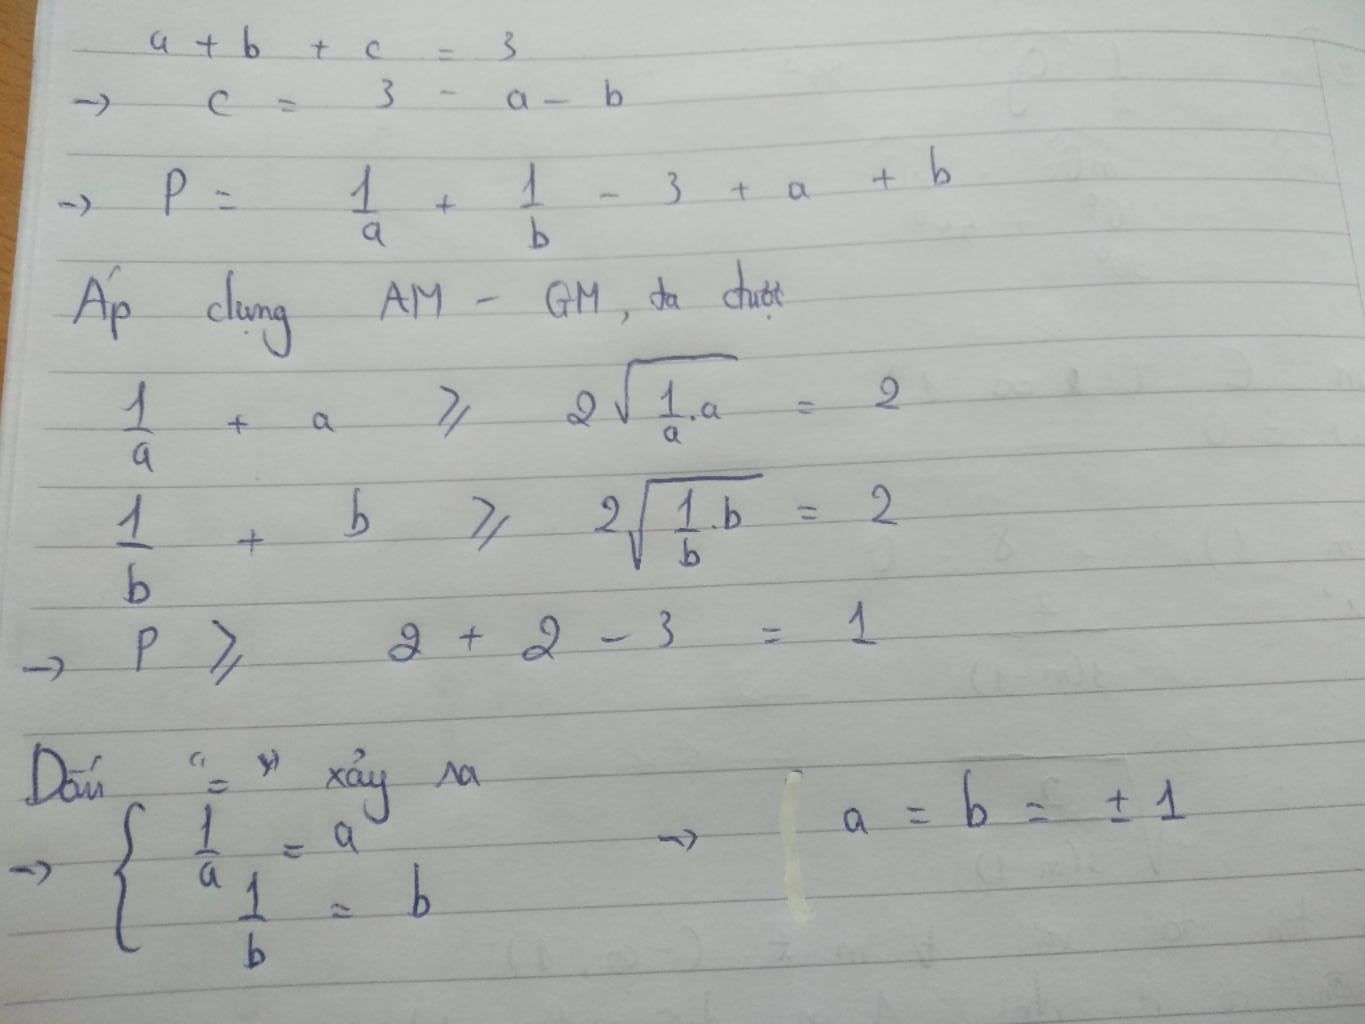 a + b + c = 3
→ c = 3 - a - b
→ P = 1/a + 1/b - 3 + a + b
Áp dụng AM - GM, ta được
1/a + a ⩾ 2√(1/a . a) = 2
1/b + b ⩾ 2√(1/b . b) = 2
→ P ⩾ 2 + 2 - 3 = 1
Dấu "=" xảy ra
→ { 1/a = a → a = b = ± 1
1/b = b